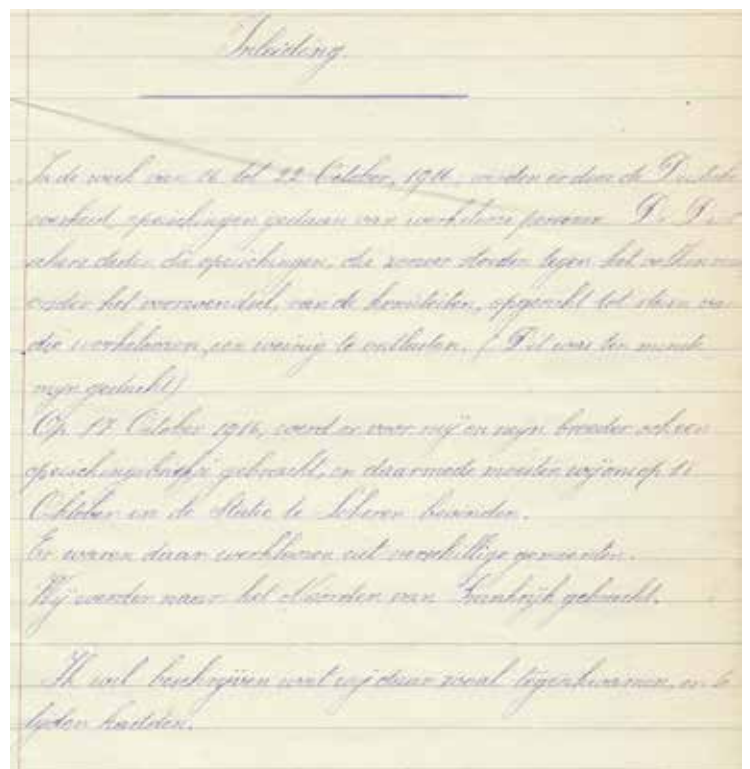 Inleiding.
In de week van 16 tot 22 October, 1916, werden er door de Duitsche
overheid opeischingen gedaan van werkelooze personen. De Duit
schers deden die opeischingen, die zoozeer streden tegen het volkenrecht
onder het voorwendsel, van de komiteiten, opgericht tot steun van
die werkeloozen, een weinig te ontlasten. (Dit was ten minste
mijn gedacht)
Op 17 October 1916, werd er voor mij en mijn broeder ook een
opeischingsbriefje gebracht, en daarmede moesten wij ons op 18
Oktober in de Statie te Lokeren bevinden.
Er waren daar werkloozen uit verschillige gemeenten.
Wij werden naar het Noorden van Frankrijk gebracht.
Ik wil beschrijven wat wij daar zooal tegenkwamen, en te
lijden hadden.